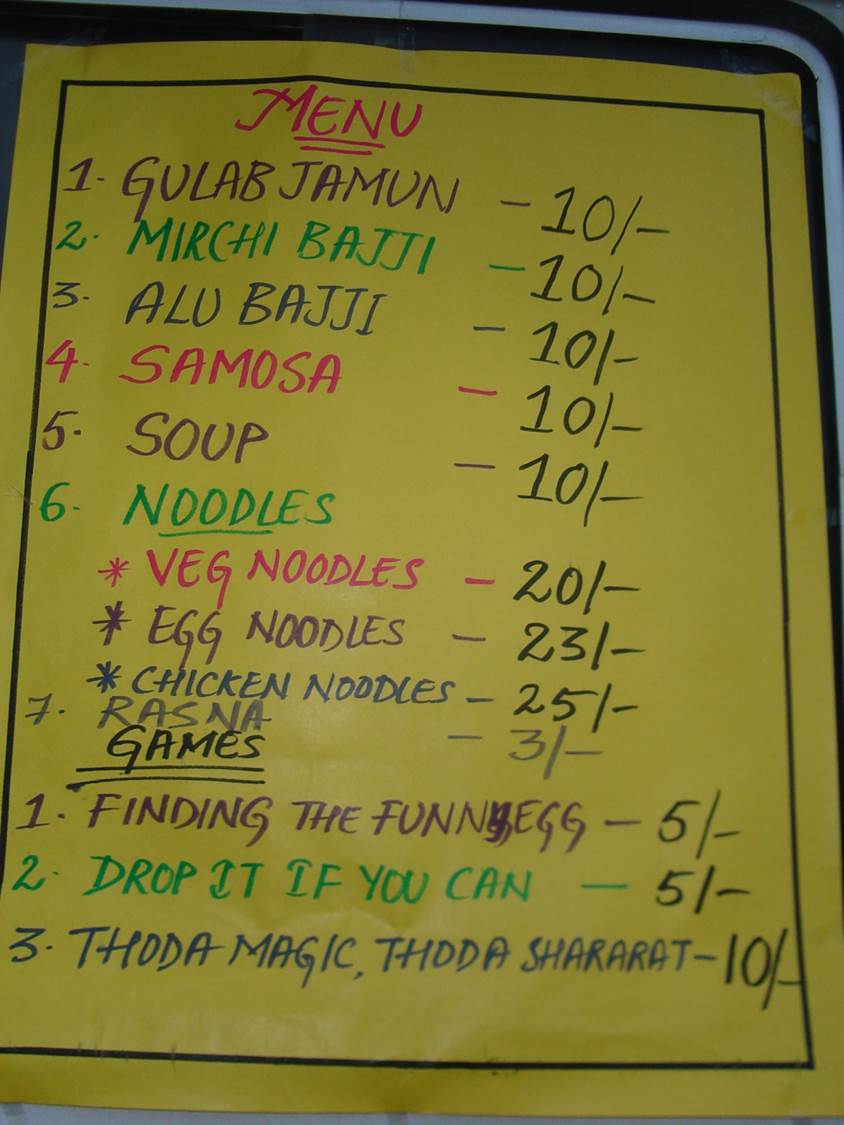 MENU
1. GULAB JAMUN - 10/-
2. MIRCHI BAJJI - 10/-
3. ALU BAJJI - 10/-
4. SAMOSA - 10/-
5. SOUP - 10/-
6. NOODLES
* VEG NOODLES - 20/-
* EGG NOODLES - 23/-
* CHICKEN NOODLES - 25/-
7. RASNA - 3/-
GAMES
1. FINDING THE FUNNY EGG - 5/-
2. DROP IT IF YOU CAN - 5/-
3. THODA MAGIC, THODA SHARARAT - 10/-